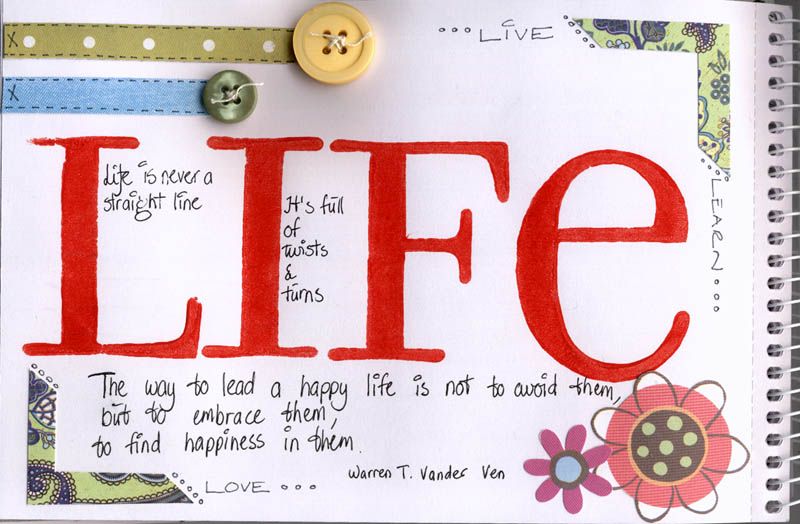 ...LiVE
LIFe
Life is never a
straight line
It's full
of
twists
&
turns
LEARN...
The way to lead a happy life is not to avoid them,
but to embrace them,
to find happiness in them.
Warren T. Vander Ven
LOVE...